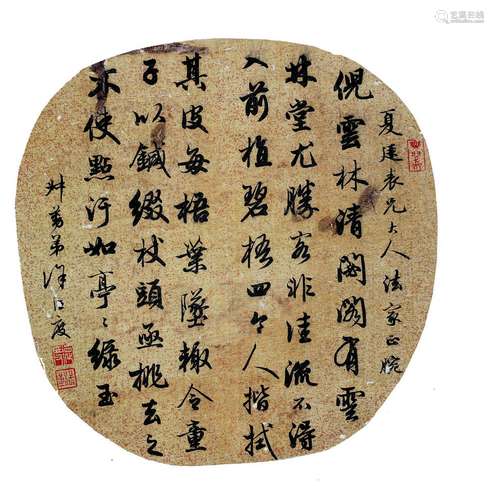 夏廷表兄大人法家正腕
倪雲林清閟閣有雲
林堂尤勝客非佳流不得
入前植碧梧四令人揩拭
其皮每梧葉墜輙令童
子以鍼綴杖頭亟挑去之
不使點汙如亭〻綠玉
弟徐